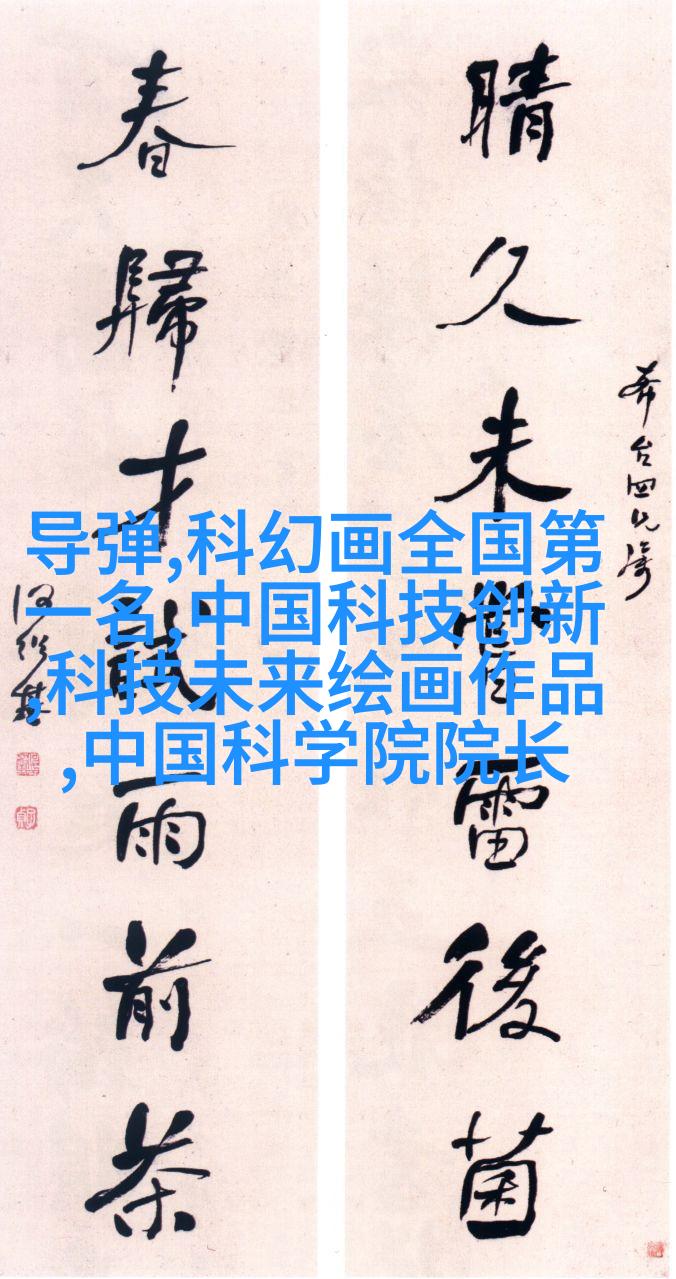 晴久未嘗雷後菌
春歸才試雨前茶
何紹基
导弹,科幻画全国第
一名,中国科技创新
,科技未来绘画作品
,中国科学院院长